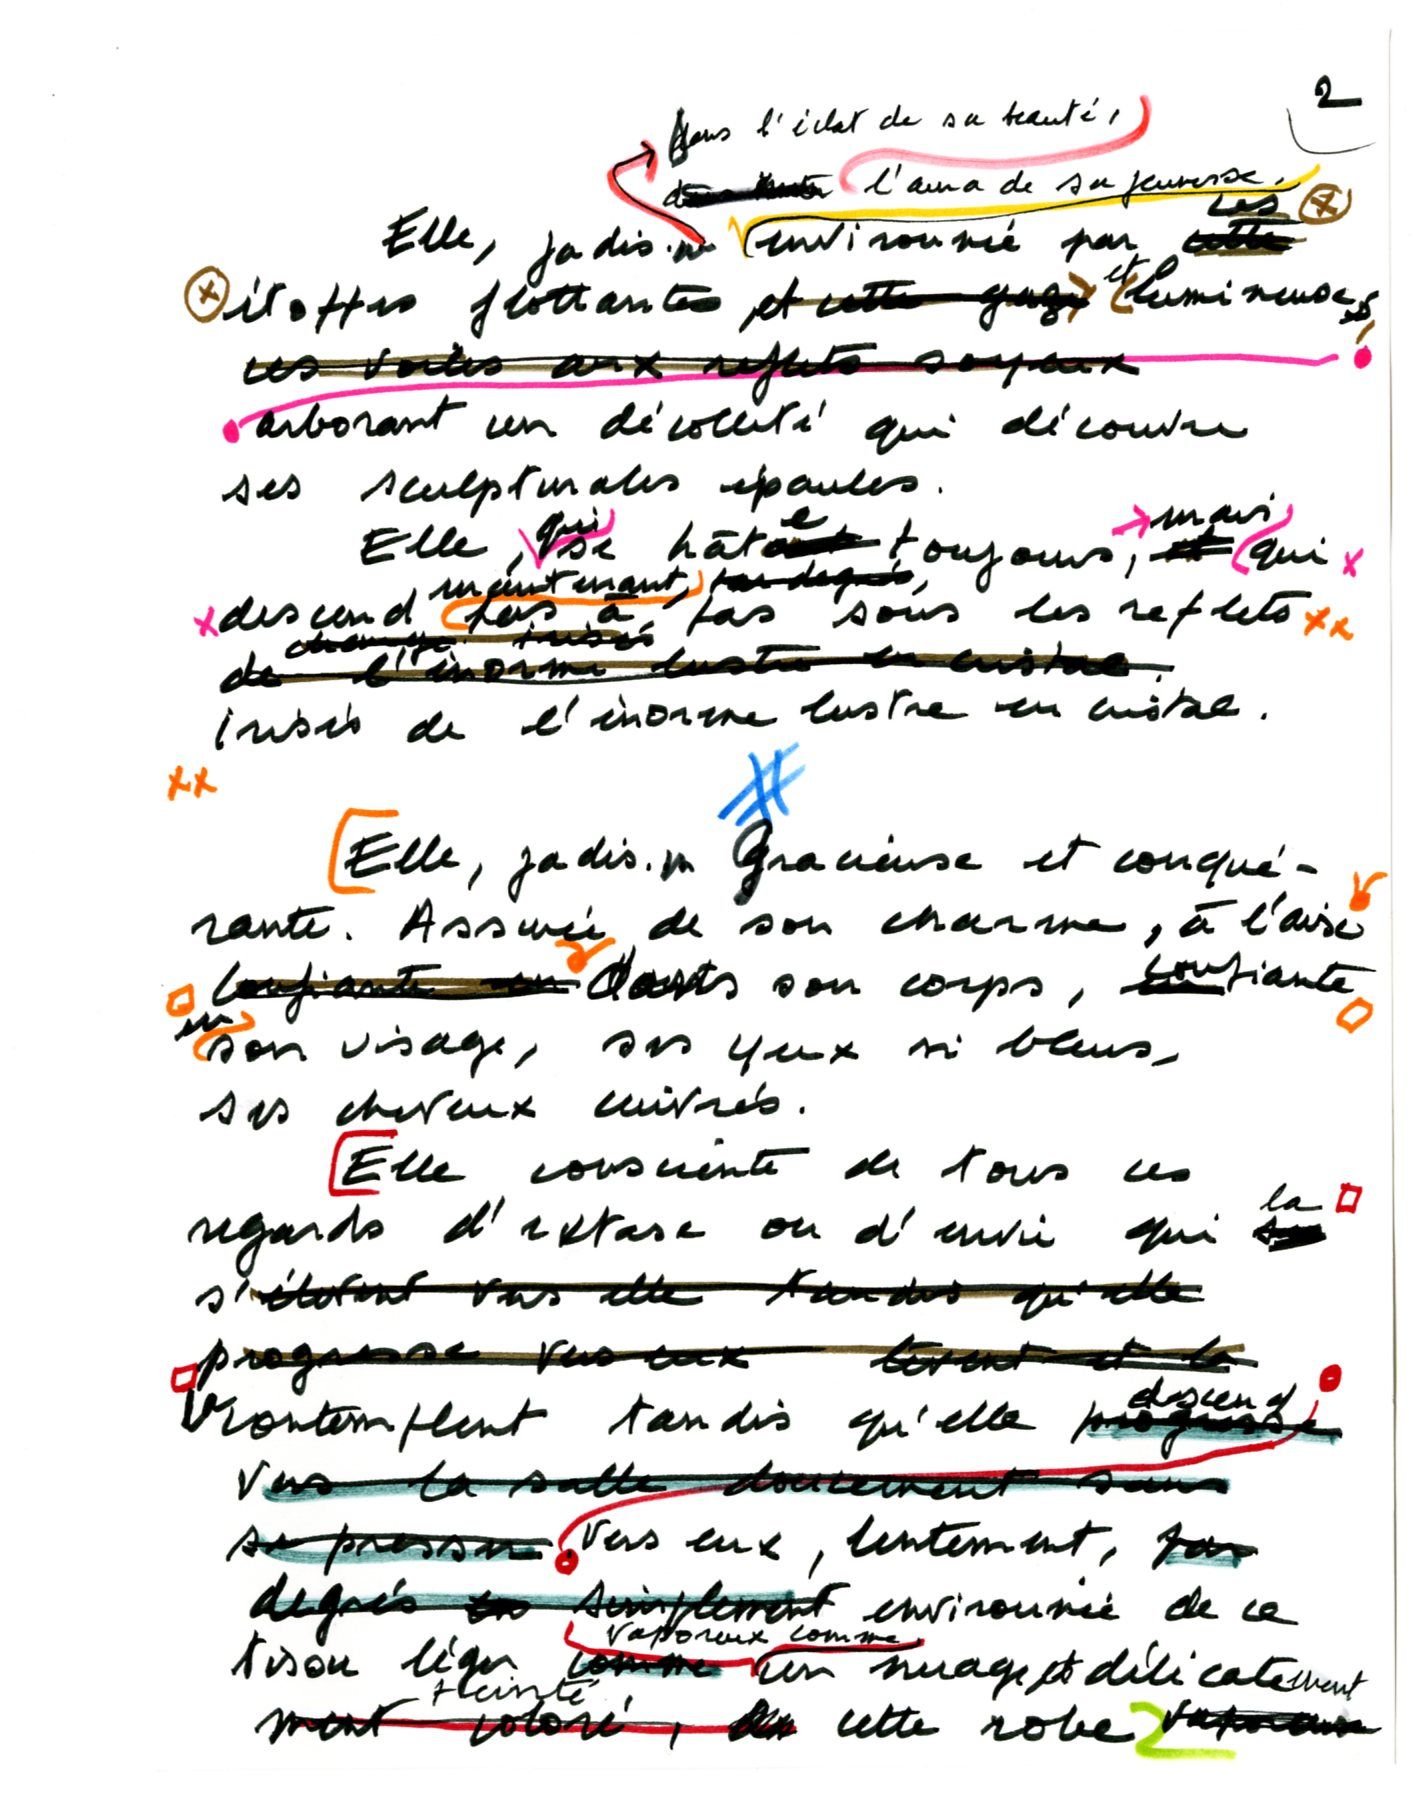 2
Dans l'éclat de sa beauté,
l'aura de sa jeunesse,
Elle, jadis... environnée par cette ces
étoffes flottantes, et cette gaze et lumineuses,
ces voiles aux reflets soyeux
arborant un décolleté qui découvre
ses sculpturales épaules.
Elle, qui se hâtait e toujours, et mais qui
maintenant, par degrés,
descend pas à pas sous les reflets
irisés
de l'énorme lustre en cristal.
irisés de l'énorme lustre en cristal.
xx
#
Elle, jadis... Gracieuse et conqué-
rante. Assurée de son charme, à l'aise
confiante en dans son corps, confiante
en son visage, ses yeux si bleus,
ses cheveux cuivrés.
Elle consciente de tous ces
regards d'extase ou d'envie qui la
s'élèvent vers elle tandis qu'elle
progresse vers eux lèvent et la
contemplent tandis qu'elle progresse descend
vers la salle doucement sans
se presser vers eux, lentement, par
degrés simplement environnée de ce
vaporeux comme
tissu léger comme un nuage, et délicatement
teinté
ment coloré, cette robe vaporeuse